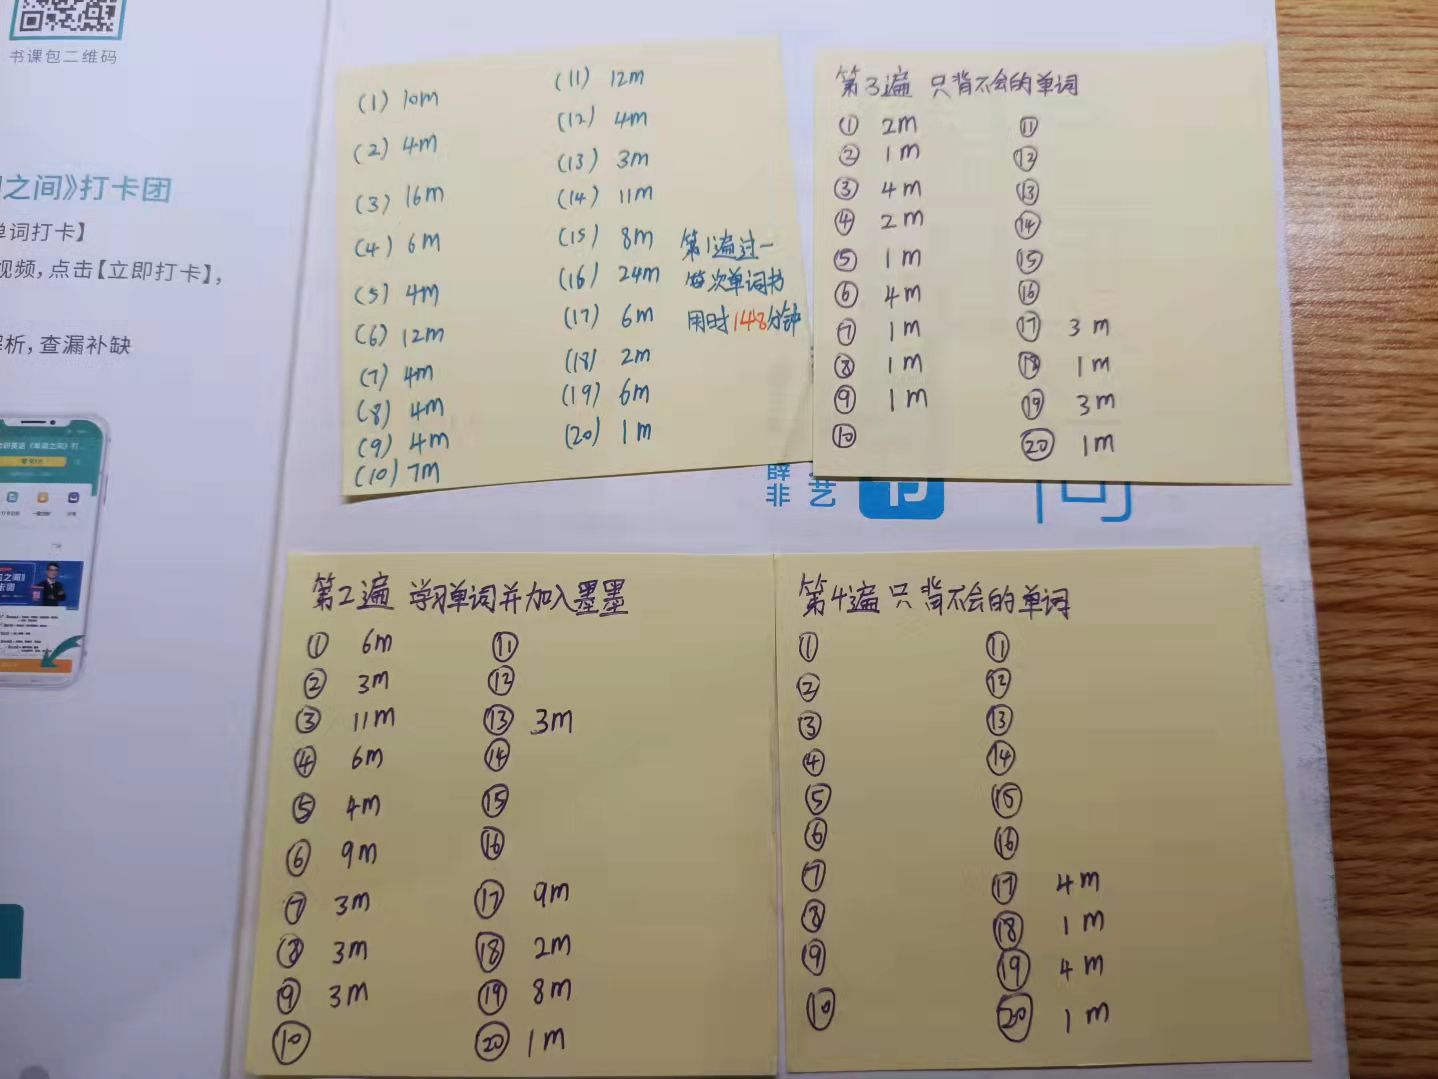 书课包二维码
之间》打卡团
单词打卡】
视频,点击【立即打卡】,
析,查漏补缺
(1) 10m
(2) 4m
(3) 16m
(4) 6m
(5) 4m
(6) 12m
(7) 4m
(8) 4m
(9) 4m
(10) 7m
(11) 12m
(12) 4m
(13) 3m
(14) 11m
(15) 8m
(16) 24m
(17) 6m
(18) 2m
(19) 6m
(20) 1m
第1遍过一
每次单词书
用时148分钟
第3遍 只背不会的单词
① 2m
② 1m
③ 4m
④ 2m
⑤ 1m
⑥ 4m
⑦ 1m
⑧ 1m
⑨ 1m
⑩
⑪
⑫
⑬
⑭
⑮
⑯
⑰ 3m
⑱ 1m
⑲ 3m
⑳ 1m
薛非
艺
第2遍 学习单词并加入墨墨
① 6m
② 3m
③ 11m
④ 6m
⑤ 4m
⑥ 9m
⑦ 3m
⑧ 3m
⑨ 3m
⑩
⑪
⑫
⑬ 3m
⑭
⑮
⑯
⑰ 9m
⑱ 2m
⑲ 8m
⑳ 1m
第4遍 只背不会的单词
①
②
③
④
⑤
⑥
⑦
⑧
⑨
⑩
⑪
⑫
⑬
⑭
⑮
⑯
⑰ 4m
⑱ 1m
⑲ 4m
⑳ 1m